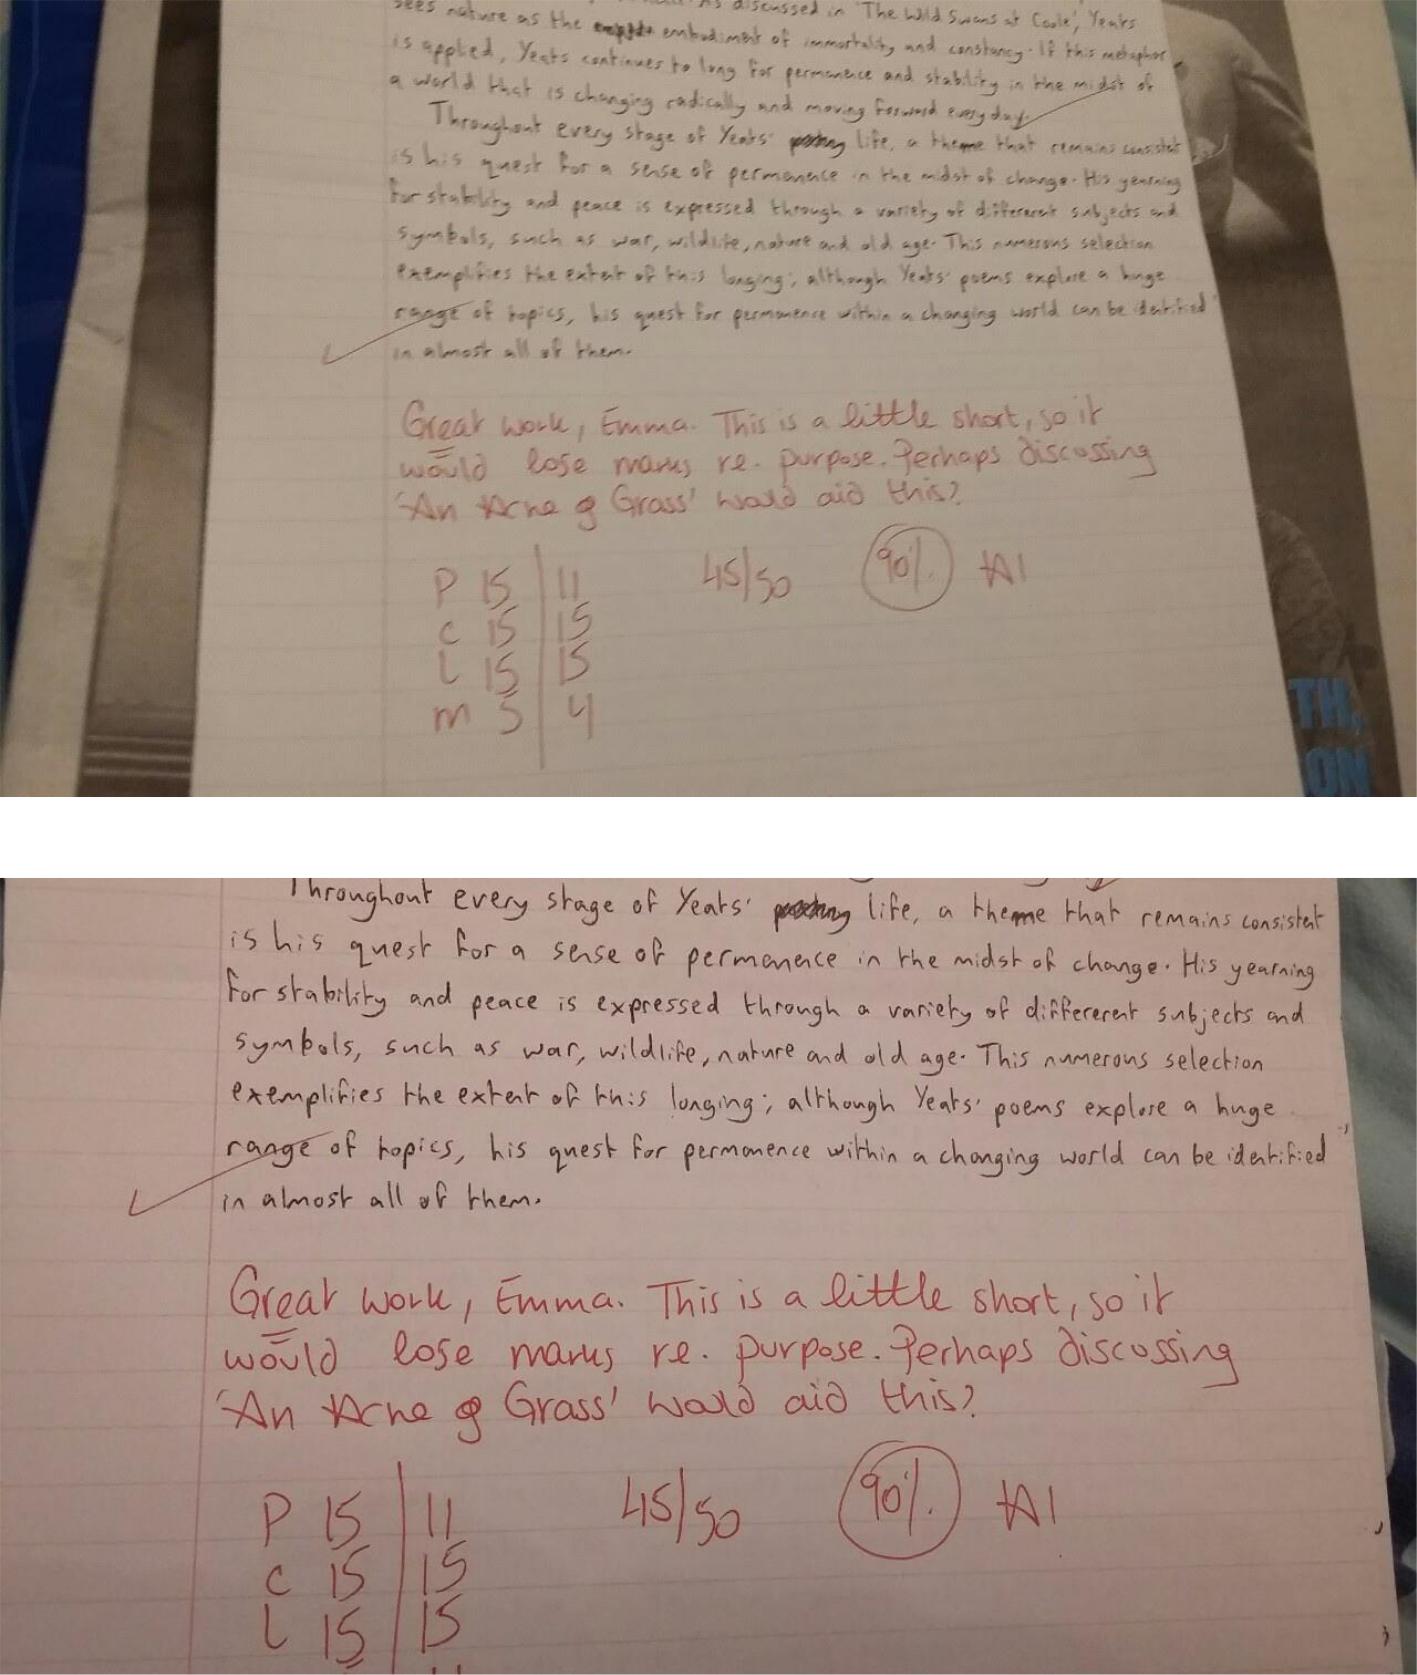 As discussed in 'The Wild Swans at Coole', Yeats
sees nature as the embodiment of immortality and constancy. If this metaphor
is applied, Yeats continues to long for permanence and stability in the midst of
a world that is changing radically and moving forward every day.
Throughout every stage of Yeats' life, a theme that remains consistent
is his quest for a sense of permanence in the midst of change. His yearning
for stability and peace is expressed through a variety of differerent subjects and
symbols, such as war, wildlife, nature and old age. This numerous selection
exemplifies the extent of this longing; although Yeats' poems explore a huge
range of topics, his quest for permanence within a changing world can be identified
in almost all of them.
Great work, Emma. This is a little short, so it
would lose marks re. purpose. Perhaps discussing
'An Acre of Grass' would aid this?
P 15 | 11 45/50 90% A1
C 15 | 15
L 15 | 15
M 5 | 4
TH,
ON
Throughout every stage of Yeats' life, a theme that remains consistent
is his quest for a sense of permanence in the midst of change. His yearning
for stability and peace is expressed through a variety of differerent subjects and
symbols, such as war, wildlife, nature and old age. This numerous selection
exemplifies the extent of this longing; although Yeats' poems explore a huge
range of topics, his quest for permanence within a changing world can be identified
in almost all of them.
Great work, Emma. This is a little short, so it
would lose marks re. purpose. Perhaps discussing
'An Acre of Grass' would aid this?
P 15 | 11 45/50 90% A1
C 15 | 15
L 15 | 15